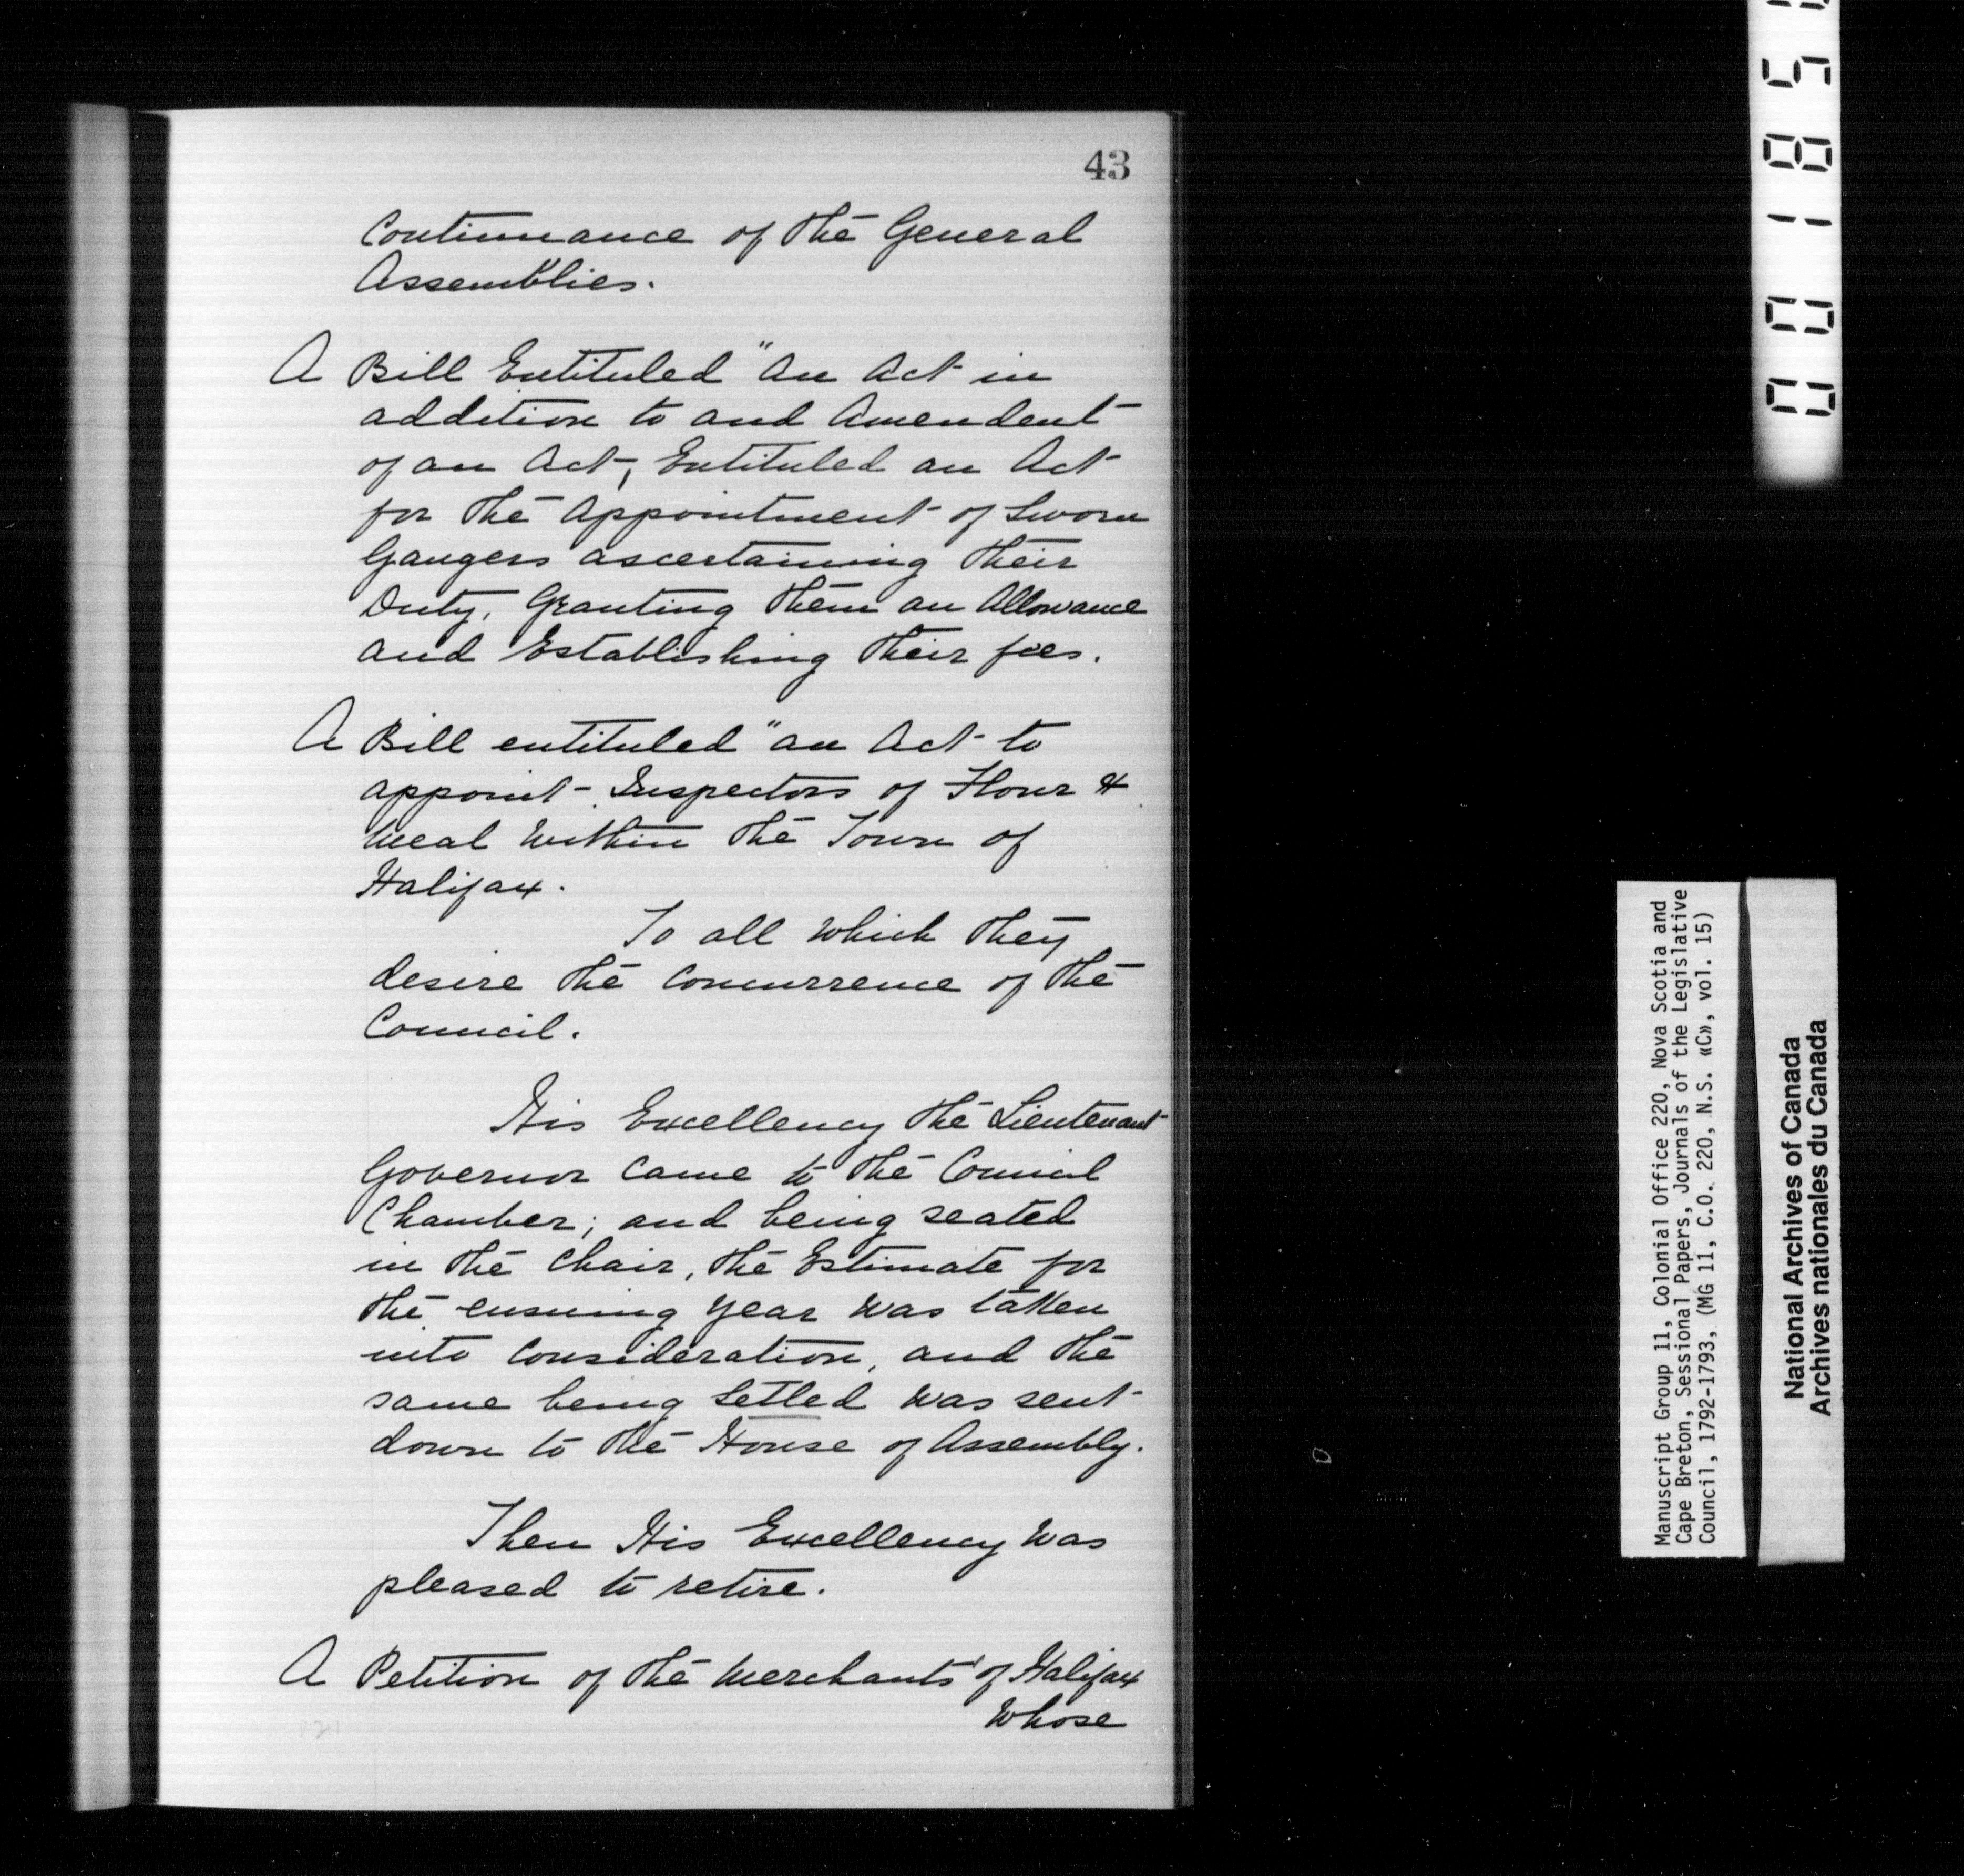 43
Continnance of the General
Assemblies.
A Bill Entituled "An Act in
addition to and Amendent
of an Act, Entituled an Act
for the Appointment of Sworn
Gaugers ascertaining their
Duty, Granting them an Allowance
and Establishing their fees.
A Bill entituled "an Act to
appoint Inspectors of Flour &
Meal within the Town of
Halifax.
To all which they
desire the concurrence of the
Council.
His Excellency the Lieutenant
Governor came to the Council
Chamber; and being seated
in the Chair, the Estimate for
the ensuing year was taken
into Consideration, and the
same being Setled was sent
down to the House of Assembly.
Then His Excellency was
pleased to retire.
A Petition of the Merchants of Halifax
Whose
00185
Manuscript Group 11, Colonial Office 220, Nova Scotia and
Cape Breton, Sessional Papers, Journals of the Legislative
Council, 1792-1793, (MG 11, C.O. 220, N.S. «C», vol. 15)
National Archives of Canada
Archives nationales du Canada